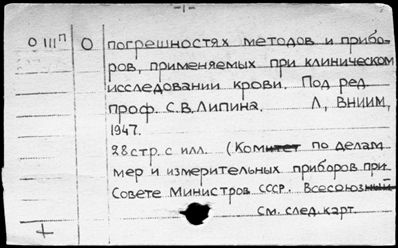 -1-
О III п О погрешностях методов и прибо-
ров, применяемых при клиническом
исследовании крови. Под ред.
проф. С.В.Липина. Л, ВНИИМ,
1947.
28 стр. с илл. (Комитет по делам
мер и измерительных приборов при
Совете Министров СССР. Всесоюзный
см. след. карт.